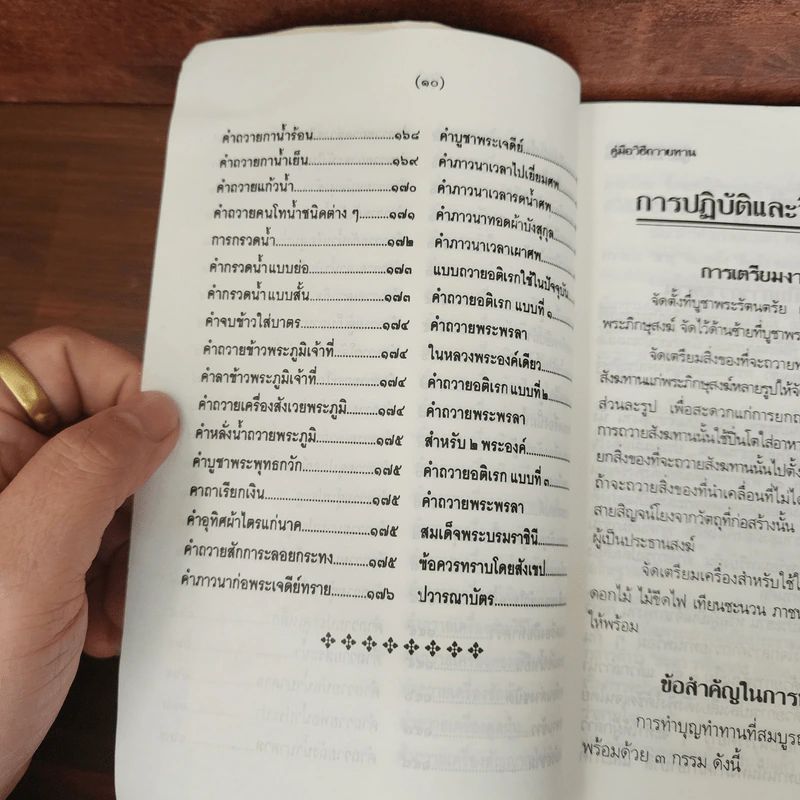 (๑๐)
คำถวายกาน้ำร้อน....................๑๖๘
คำถวายกาน้ำเย็น....................๑๖๙
คำถวายแก้วน้ำ....................๑๗๐
คำถวายคนโทน้ำชนิดต่าง ๆ.........๑๗๑
การกรวดน้ำ....................๑๗๒
คำกรวดน้ำแบบย่อ....................๑๗๓
คำกรวดน้ำแบบสั้น....................๑๗๓
คำจบข้าวใส่บาตร....................๑๗๔
คำถวายข้าวพระภูมิเจ้าที่............๑๗๔
คำลาข้าวพระภูมิเจ้าที่...............๑๗๔
คำถวายเครื่องสังเวยพระภูมิ........๑๗๔
คำหลั่งน้ำถวายพระภูมิ...............๑๗๕
คำบูชาพระพุทธกวัก..................๑๗๕
คาถาเรียกเงิน....................๑๗๕
คำอุทิศผ้าไตรแก่นาค..................๑๗๕
คำถวายสักการะลอยกระทง............๑๗๕
คำภาวนาก่อพระเจดีย์ทราย.........๑๗๖
คำบูชาพระเจดีย์..........
คำภาวนาเวลาไปเยี่ยมศพ....
คำภาวนาเวลารดน้ำศพ....
คำภาวนาทอดผ้าบังสุกุล....
คำภาวนาเวลาเผาศพ.......
แบบถวายอดิเรกใช้ในปัจจุบัน
คำถวายอดิเรก แบบที่ ๑.....
คำถวายพระพรลา
ในหลวงพระองค์เดียว........
คำถวายอดิเรก แบบที่ ๒.....
คำถวายพระพรลา
สำหรับ ๒ พระองค์..........
คำถวายอดิเรก แบบที่ ๓.....
คำถวายพระพรลา
สมเด็จพระบรมราชินี.......
ข้อควรทราบโดยสังเขป.......
ปวารณาบัตร...............
คู่มือวิธีถวายทาน
การปฏิบัติและ
การเตรียมงา
จัดตั้งที่บูชาพระรัตนตรัย
พระภิกษุสงฆ์ จัดไว้ด้านซ้ายที่บูชาพร
จัดเตรียมสิ่งของที่จะถวายพ
สังฆทานแก่พระภิกษุสงฆ์หลายรูปให้จั
ส่วนละรูป เพื่อสะดวกแก่การยกถ
การถวายสังฆทานนั้นใช้ปิ่นโตใส่อาห
ยกสิ่งของที่จะถวายสังฆทานนั้นไปตั้ง
ถ้าจะถวายสิ่งของที่นำเคลื่อนที่ไม่ได
สายสิญจน์โยงจากวัตถุที่ก่อสร้างนั้น
ผู้เป็นประธานสงฆ์
จัดเตรียมเครื่องสำหรับใช้ใ
ดอกไม้ ไม้ขีดไฟ เทียนชะนวน ภาช
ให้พร้อม
ข้อสำคัญในการ
การทำบุญทำทานที่สมบูรณ
พร้อมด้วย ๓ กรรม ดังนี้